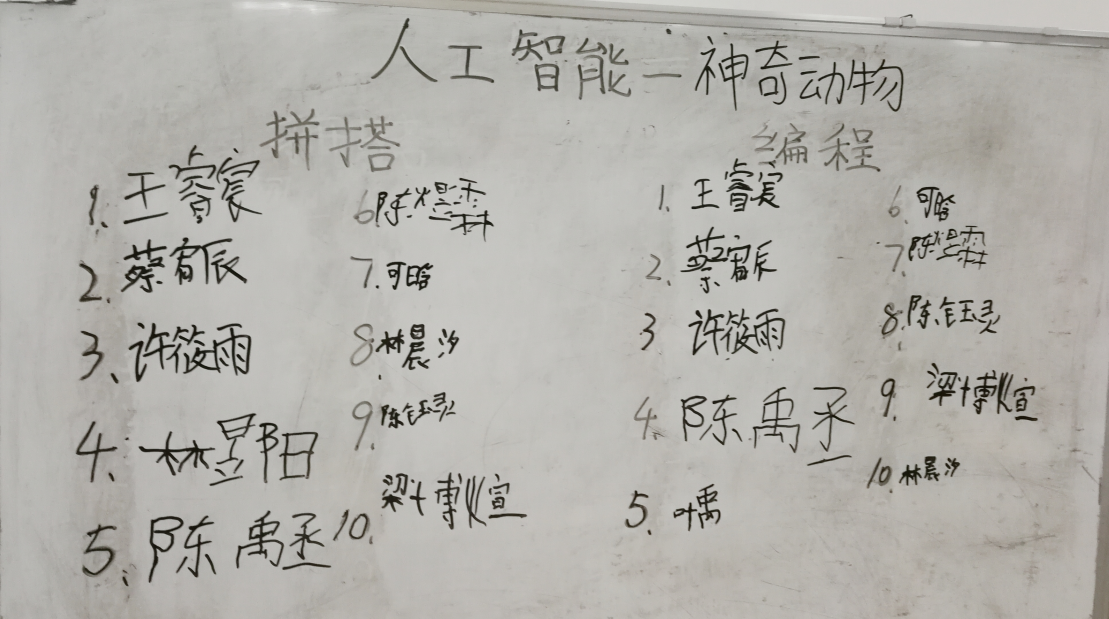 人工智能—神奇动物
拼搭
1、王睿宸
2、蔡宥辰
3、许筱雨
4、林昱阳
5、陈禹丞
6 陈煜霖
7. 可晗
8. 林晨汐
9. 陈钰灵
10. 梁博煊
编程
1. 王睿宸
2. 蔡宥辰
3 许筱雨
4. 陈禹丞
5. 叶禹
6. 可晗
7. 陈煜霖
8. 陈钰灵
9. 梁博煊
10. 林晨汐